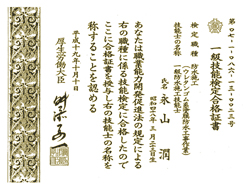 第〇七-一-〇八六-一三-〇〇二三号
一級技能検定合格証書
検定職種 防水施工
(ウレタンゴム系塗膜防水工事作業)
技能士の名称 一級防水施工技能士
氏名 永山 潤
昭和四六年三月二十五日生
あなたは職業能力開発促進法の規定による
右の職種に係る技能検定に合格したので
ここに合格証書を授与し右の技能士の名称を
称することを認める
平成十九年十月十日
厚生労働大臣